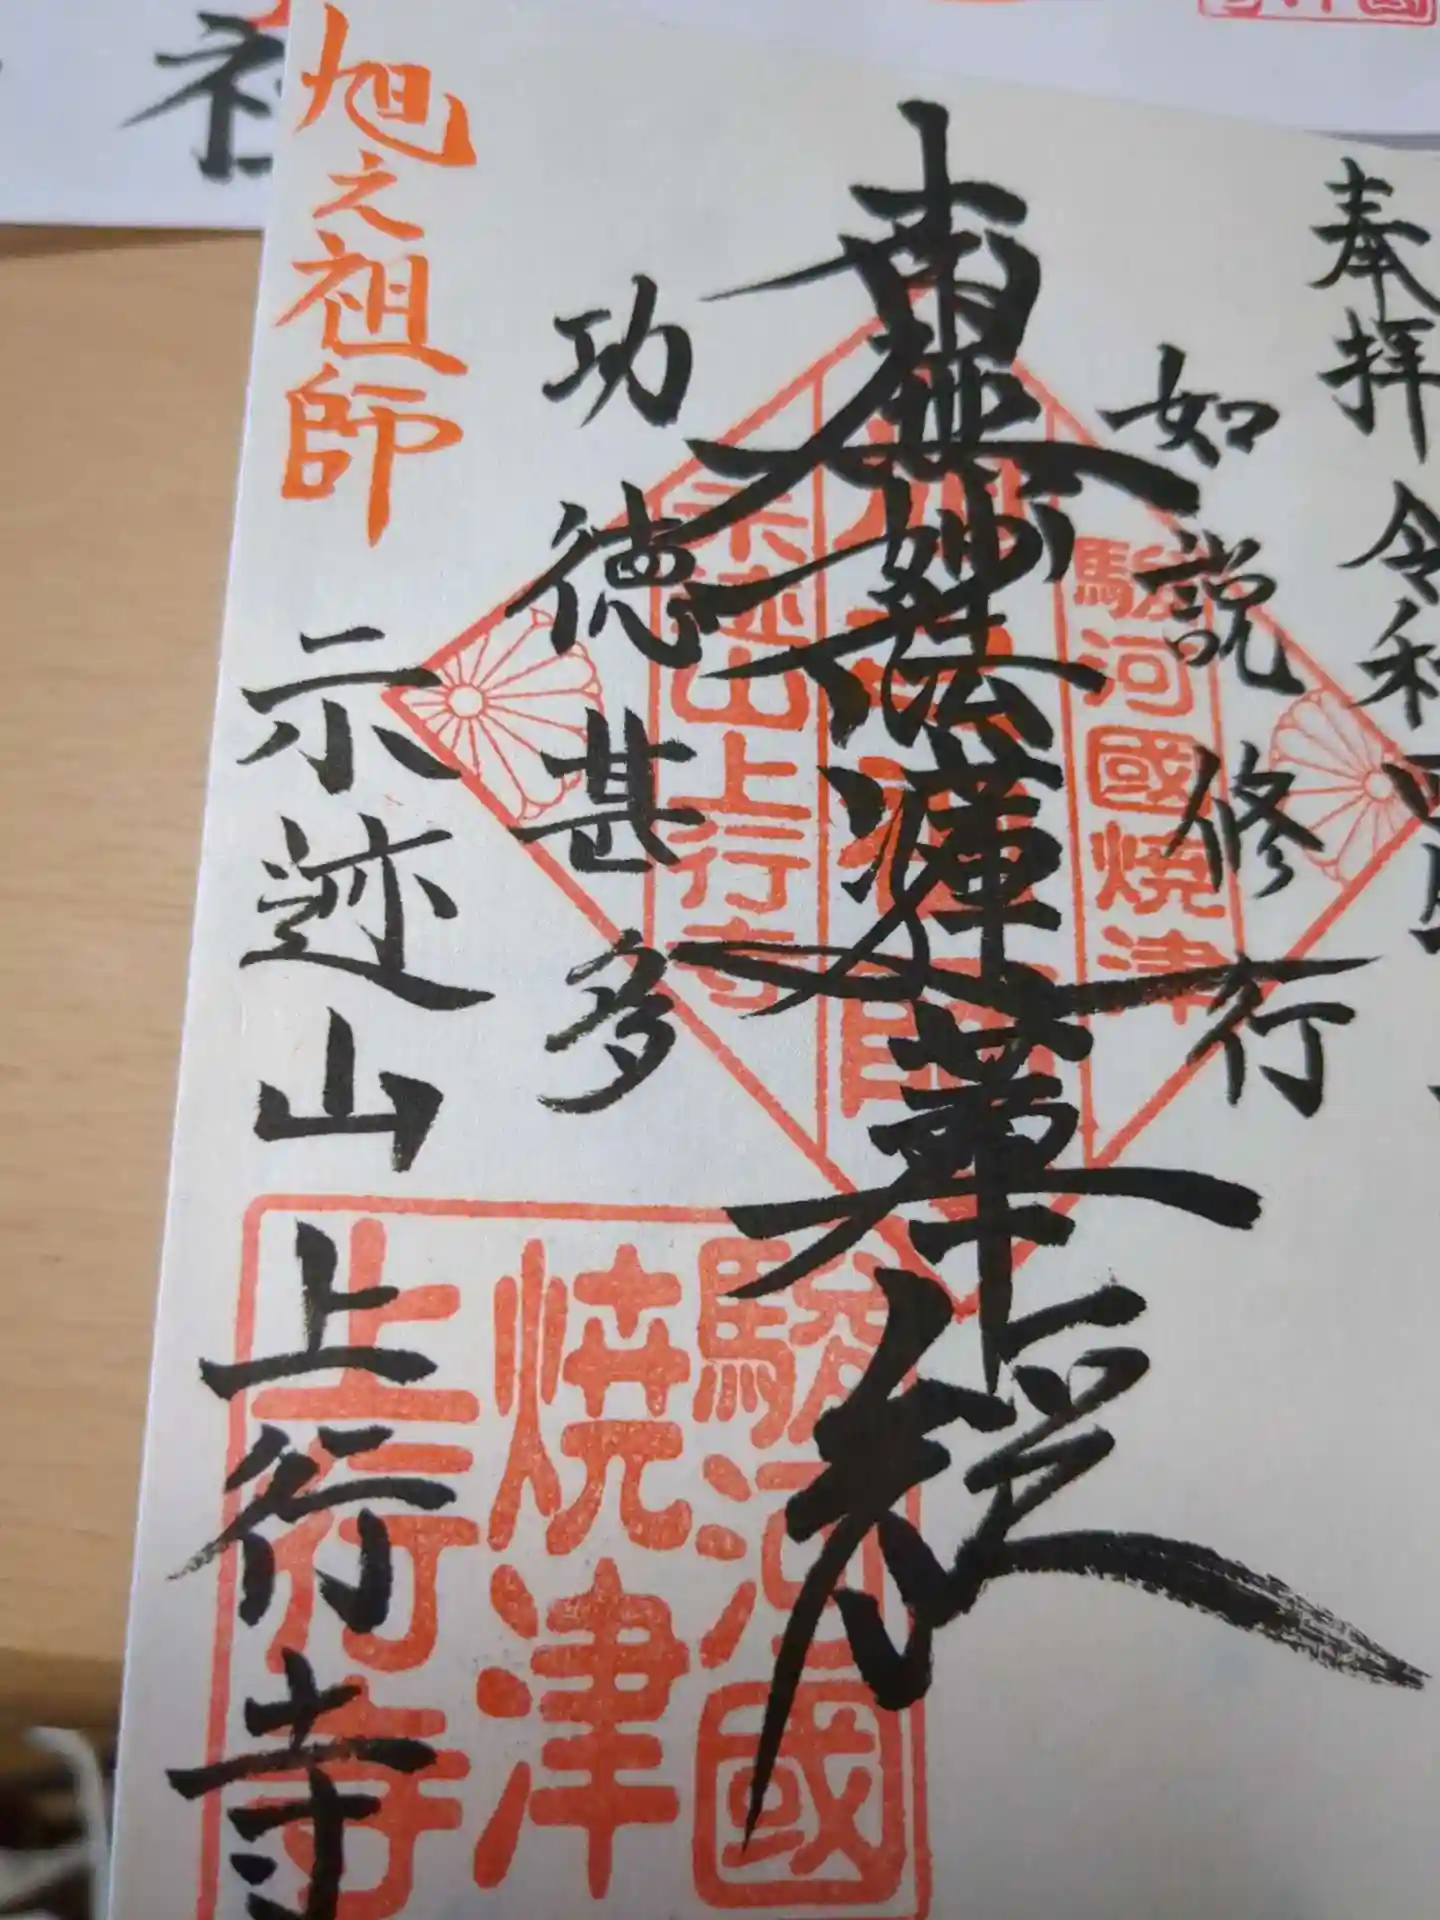 奉拝 令和
如説修行
南無妙法蓮華経
功徳甚多
旭之祖師
示迹山 上行寺
駿河國焼津
示迹山上行寺
駿河國
焼津
上行寺
社